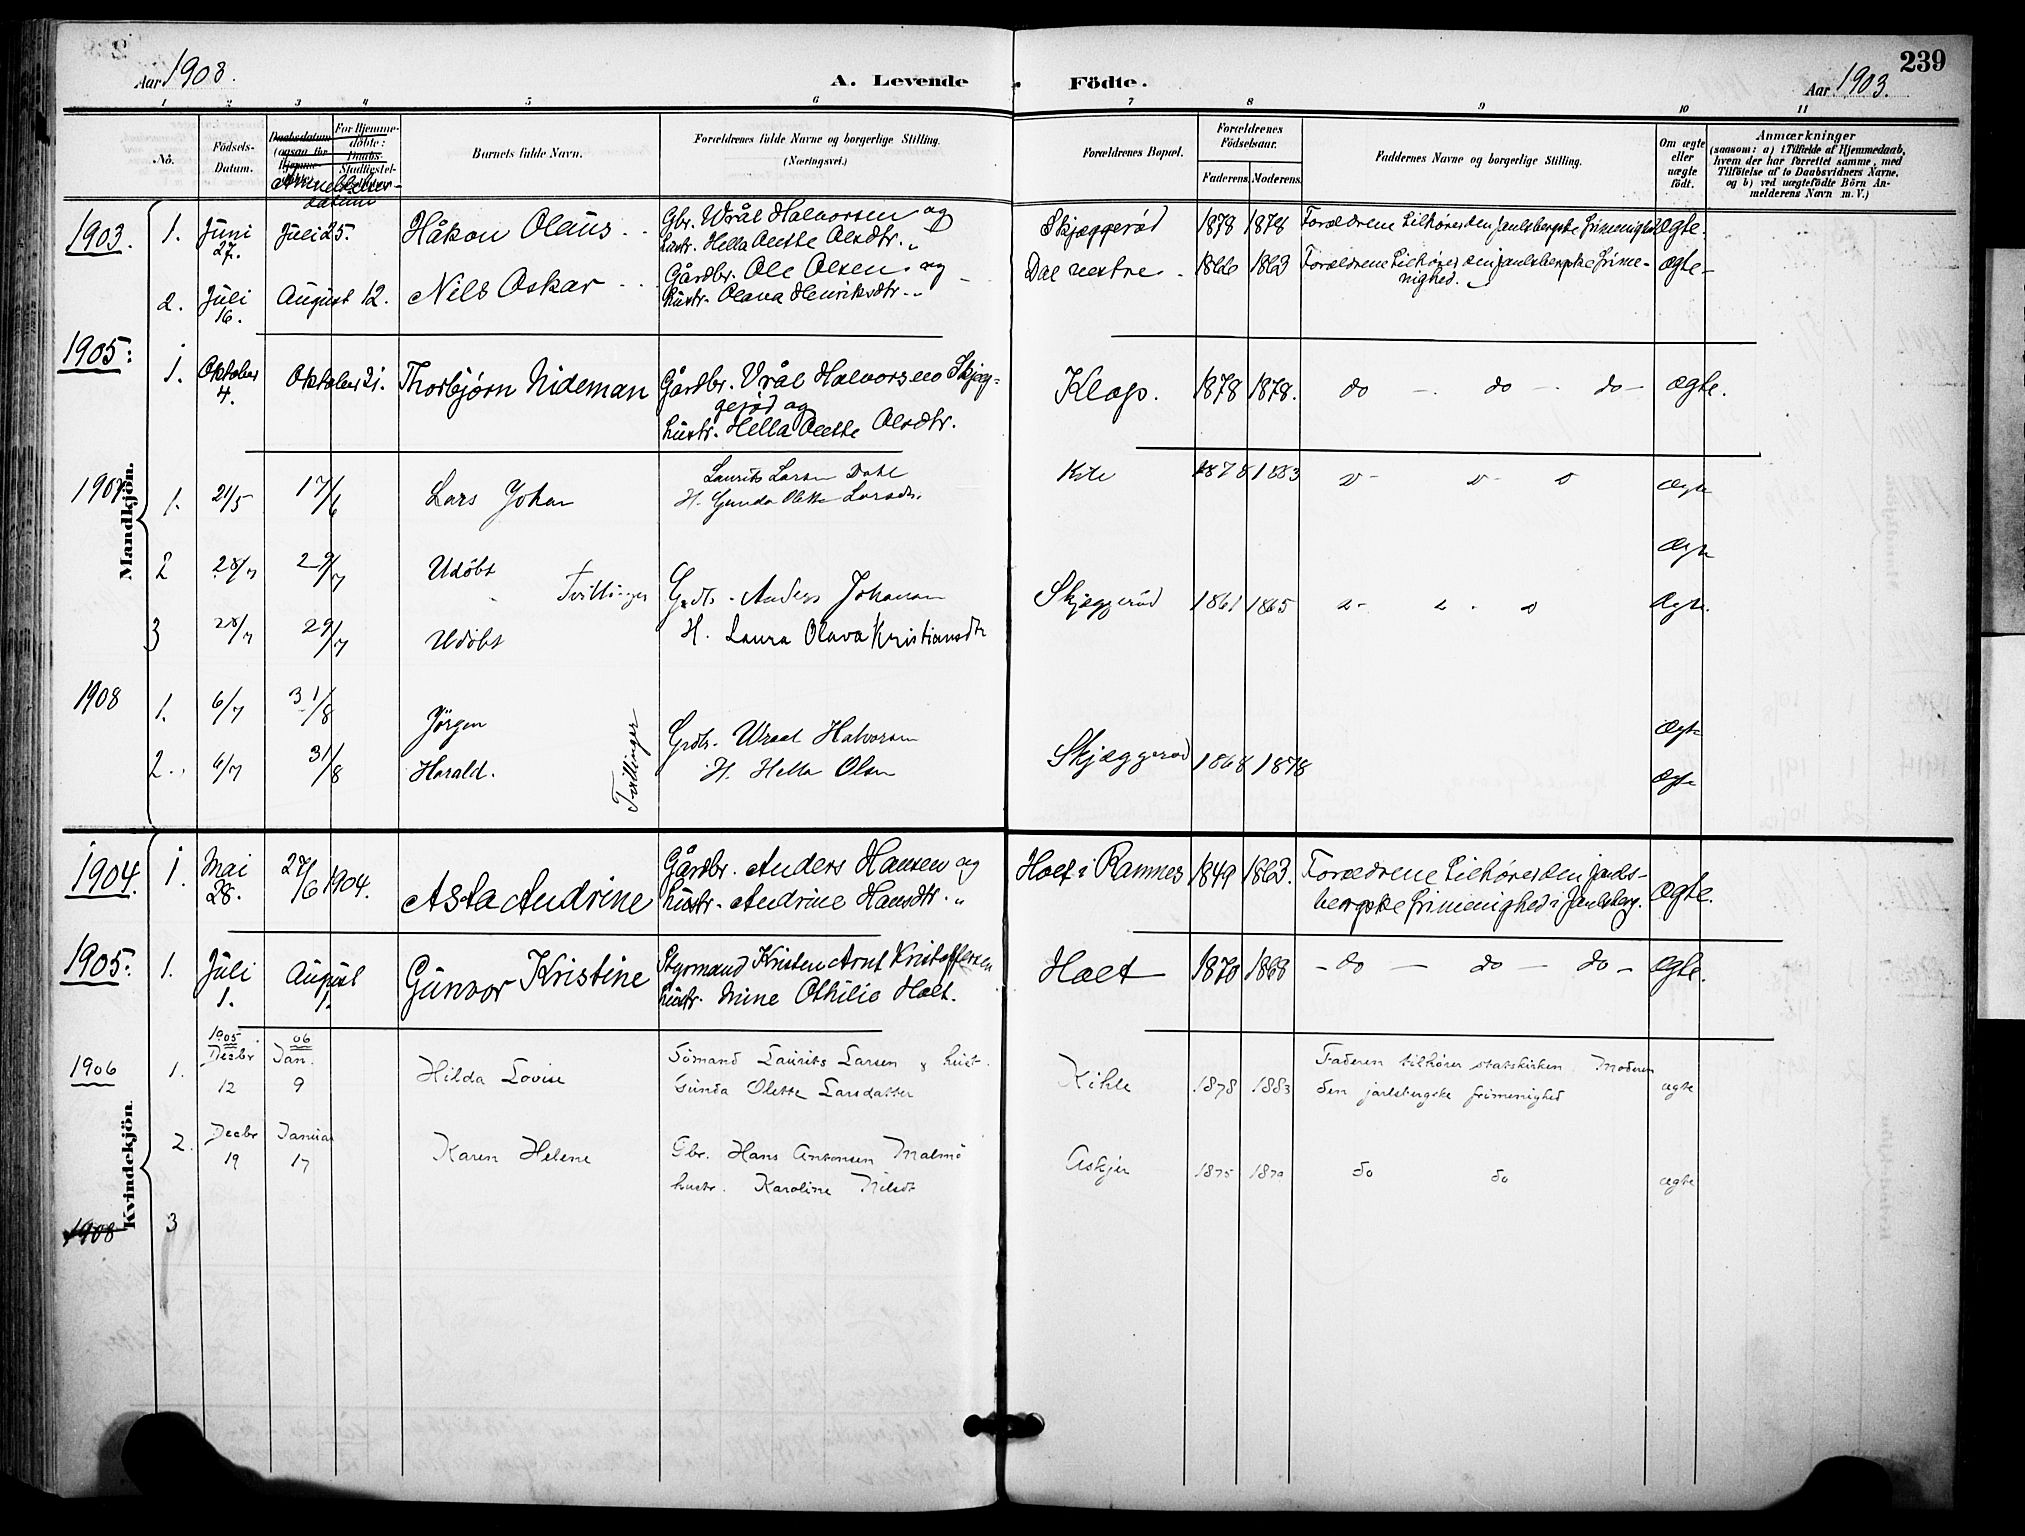 239
Aar 1903.
A. Levende Födte.
Aar 1903.
1 2 3 4 5 6 7 8 9 10 11
No.
Födsels-Datum.
Daabsdatum
(ogsaa for
Hjemme-
For Hjemme-
döbte:
Daabs-
Stadfæstel-
Anmeldelses-
datum
Barnets fulde Navn.
Forældrenes fulde Navne og borgerlige Stilling.
(Næringsvei.)
Forældrenes Bopæl.
Forældrenes
Födselsaar.
Faderens. Moderens.
Faddernes Navne og borgerlige Stilling.
Om ægte
eller
uægte
födt.
Anmærkninger
(saasom: a) i Tilfælde af Hjemmedaab,
hvem der har forrettet samme, med
Tilföielse af to Daabsvidners Navne,
og b) ved uægtefödte Börn An-
melderens Navn m. V.)
Mandkjön.
1903. 1. Juni 27. Juli 25. Håkon Olaus Gbr. Wrål Halvorsen og
hustr. Hella Anette Olsdtr. Skjæggerød 1878 1878 Forældrene tilhører den Jarlsbergske frimenighed ægte.
2. Juli 16. August 12. Nils Oskar Gårdbr. Ole Olsen og
hustr. Olava Henriksdtr. Dal vestre 1866 1863 Forældrene tilhører den Jarlsbergske frime-
nighed. ægte
1905: 1. Oktober 4. Oktober 21. Thorbjørn Nideman Gårdbr. Vrål Halvorsen Skjæg-
gerød og
hustr. Hella Anette Olsdtr. Klop. 1878 1878. do do do ægte.
1907 1. 21/5 17/6 Lars Johan Laurits Larsen Dahl
H. Gunda Olette Larsdtr. Kile 1878 1883 ægte
2 28/7 29/7 Udöbt ægte
Tvillinger Grdbr. Anders Johansen Skjæggerød 1861 1865
3 28/7 29/7 Udöbt H. Laura Olava Kristiansdtr ægte.
1908 1. 6/7 31/8 Jörgen Grdbr. Wraal Halvorsen ægte
2. 6/7 31/8 Harald. Tvillinger H. Hella Olsen Skjæggerød 1868 1878 ægte
Kvindekjön.
1904. 1. Mai 28. 27/6 1904. Asta Andrine Gårdbr. Anders Hansen og
hustr. Andrine Hansdtr. Holt i Ramnes 1849 1863. Forældrene tilhører den Jarls-
bergske frimenighed i Jarlsberg. ægte.
1905: 1. Juli 1. August 1. Gunvor Kristine Styrmand Kristen Arnt Kristoffersen
hustr. Mine Othilie Holt. Holt 1870 1868 do do do ægte.
1906 1. 1905 Decbr 12 06 Jan. 9 Hilda Lovise Sömand Laurits Larsen & hust.
Gunda Olette Larsdatter Kihle 1878 1883 Faderen tilhører statskirken Moderen
den jarlsbergske frimenighed ægte
2. Decbr 19 Januar 17 Karen Helene Gbr. Hans Antonsen Malmö
hustr. Karoline Nilsdt Askjer 1875 1879 do do ægte
1908 3